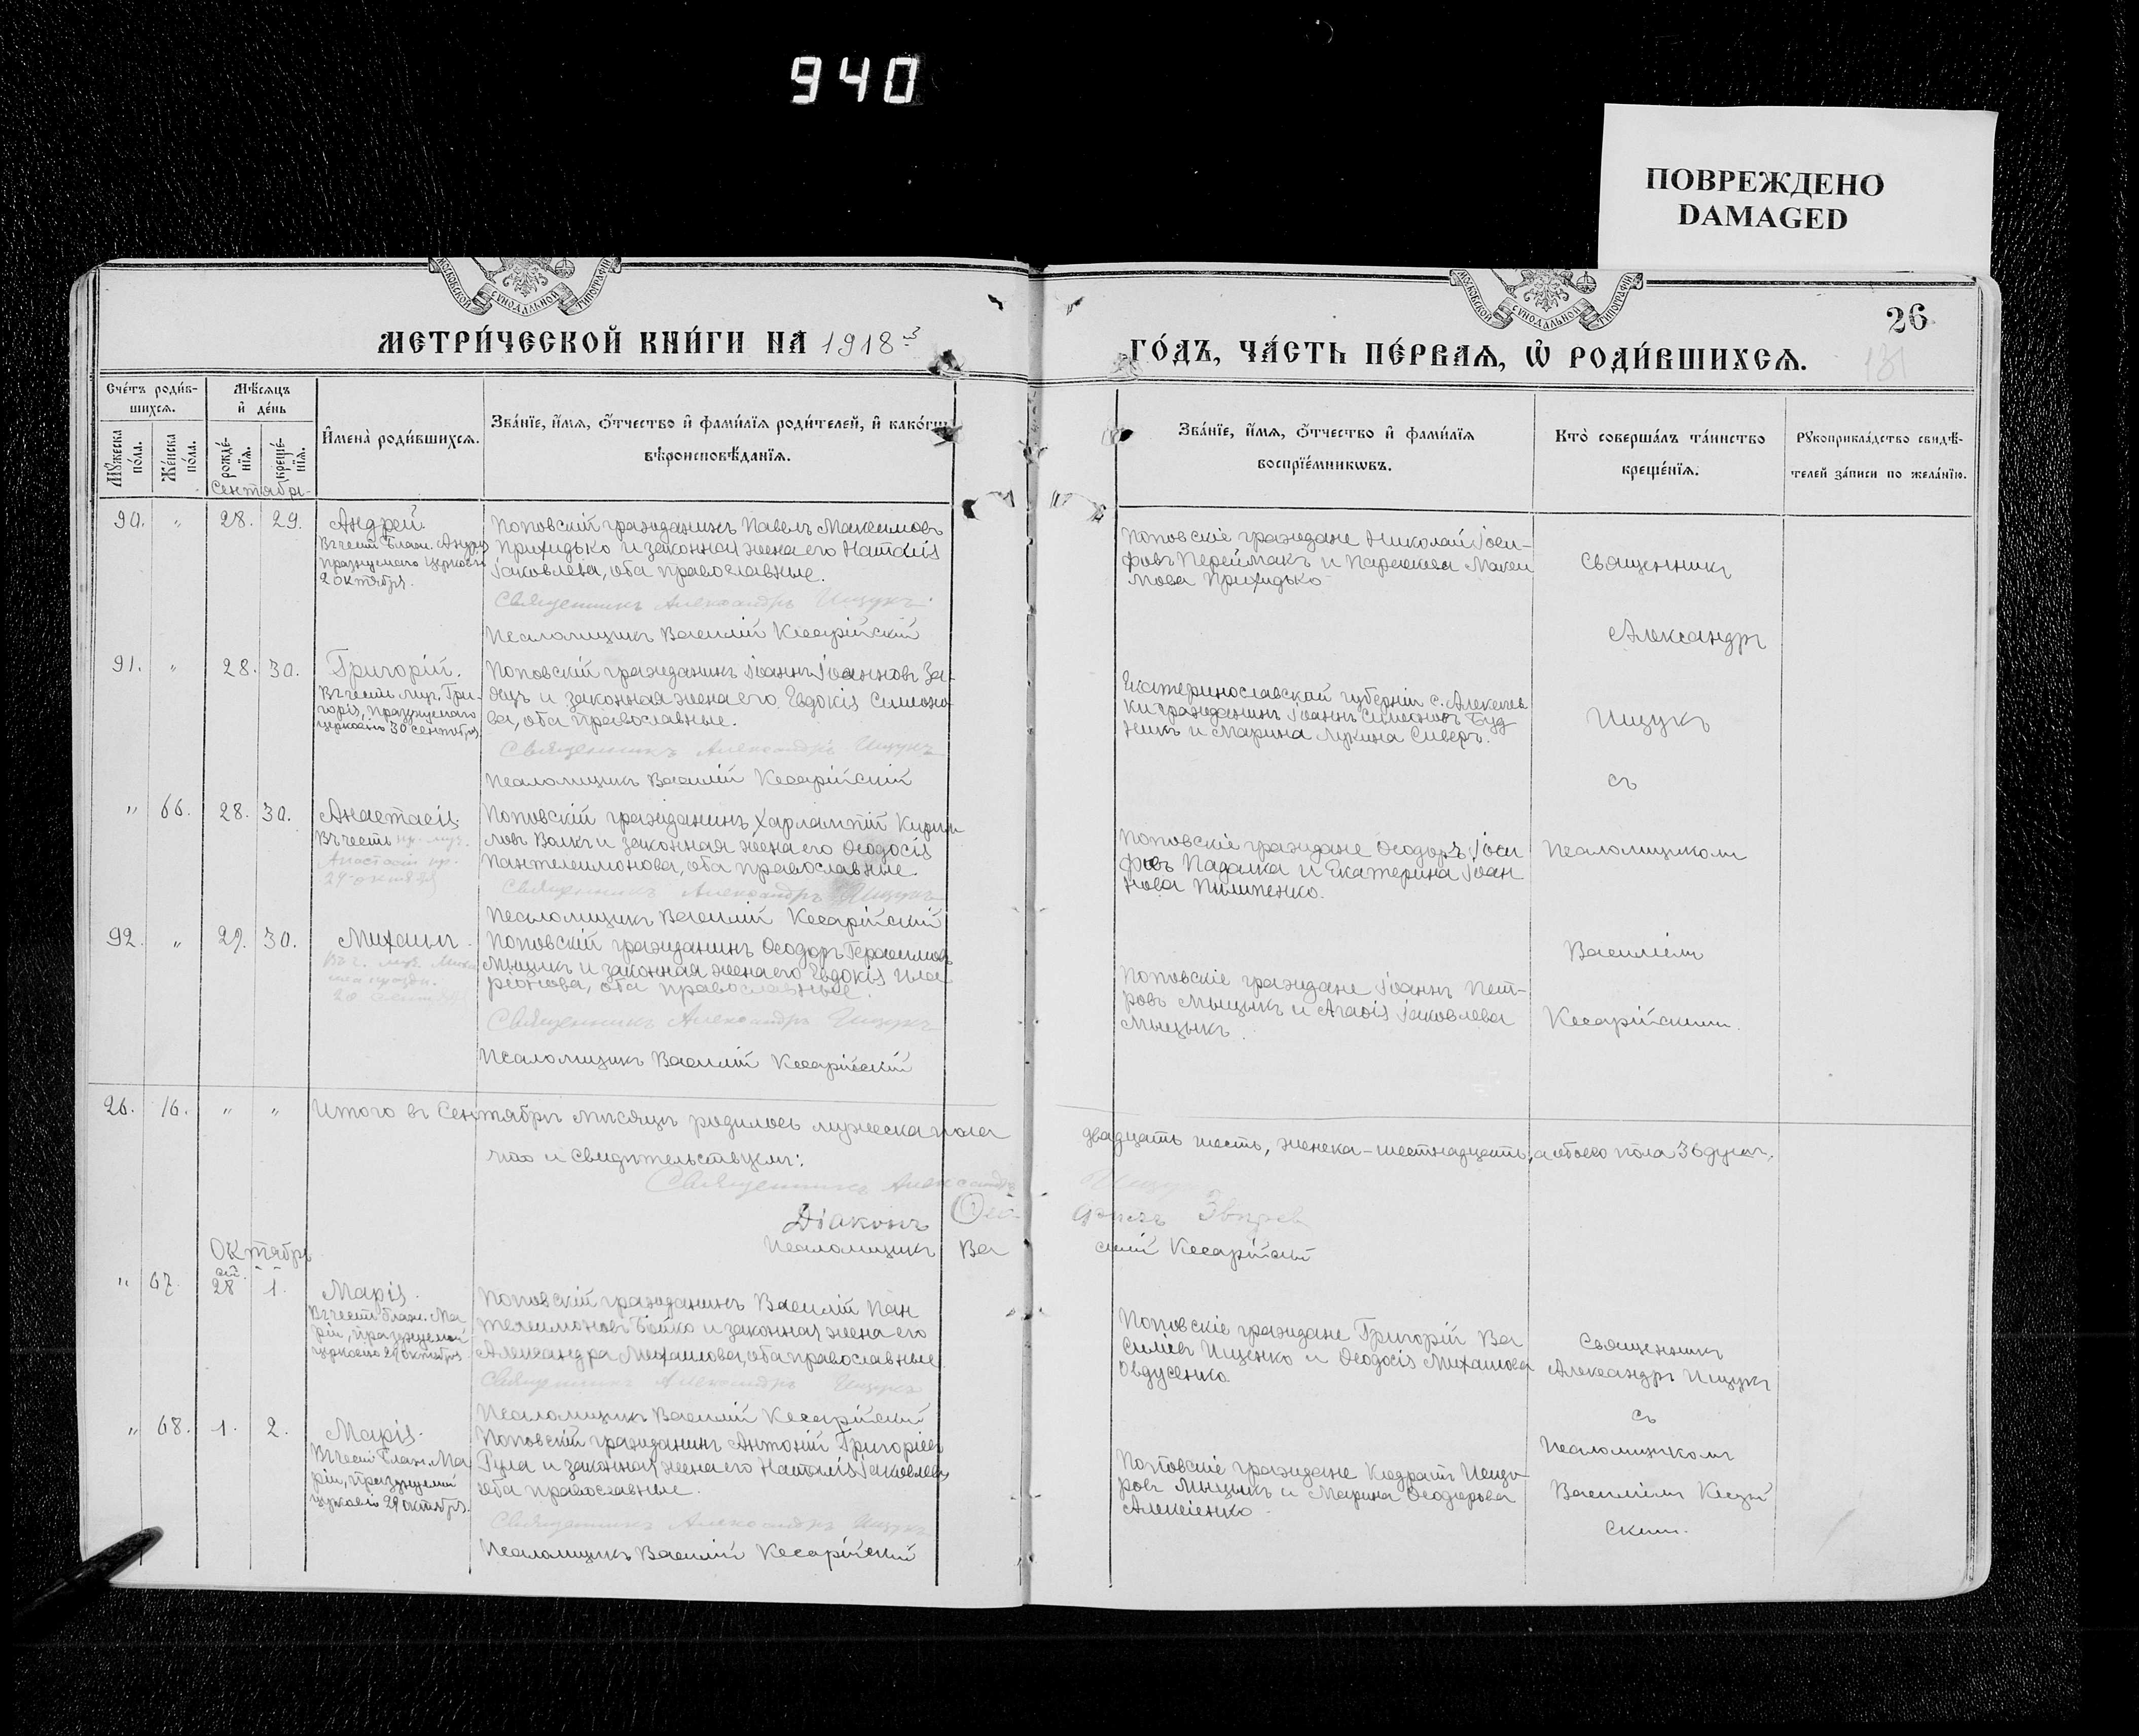 940
ПОВРЕЖДЕНО
DAMAGED
МОСКОВСКОЙ СѴНОДАЛЬНОЙ ТИПОГРАФІИ
МОСКОВСКОЙ СѴНОДАЛЬНОЙ ТИПОГРАФІИ
26
131
МЕТРИ́ЧЕСКОЙ КНИ́ГИ НА 1918й
ГО́ДЪ, ЧА́СТЬ ПЕ́РВАѦ, Ѡ РОДИ́ВШИХСѦ.
Сче́тъ роди́в-
шихсѧ.
Мѣ́сѧцъ
и҆ де́нь
Мꙋ́жеска по́ла.
Же́нска по́ла.
рожде́-
нїѧ.
креще́-
нїѧ.
И҆мена̀ роди́вшихсѧ.
Зва́нїе, и҆́мѧ, ѻ҆́тчество и҆ фами́лїѧ роди́телей, и҆ како́гѡ
вѣроисповѣ́данїѧ.
Зва́нїе, и҆́мѧ, ѻ҆́тчество и҆ фами́лїѧ
воспрїе́мникѡвъ.
Кто̀ соверша́лъ та́инство
креще́нїѧ.
Рꙋкоприкла́дство свидѣ́-
телей за́писи по жела́нїю.
Сентябрь
90. " 28. 29. Андрей.
Въ честь Блаж. Андрея
празднуемаго церковью
2 октября.
Поповскій гражданинъ Павелъ Максимовъ
Прихидько и законная жена его Наталія
Іаковлева, оба православные.
Священникъ Александръ Ищукъ
Псаломщикъ Василій Кесарійскій
Поповскіе граждане Николай Іоси-
фовъ Переймакъ и Параскева Макси
мова Прихидько
Священникъ
Александръ
91. " 28. 30. Григорій.
Въ честь муч. Гри-
горія, празднуемаго
церковію 30 сентября.
Поповскій гражданинъ Іоаннъ Іоанновъ За-
яцъ и законная жена его Евдокія Симоно
ва, оба православные.
Священникъ Александръ Ищукъ
Псаломщикъ Василій Кесарійскій
Екатеринославской губерніи с. Алексеев
ки гражданинъ Іоаннъ Симоновъ Буд
никъ и Марина Лукина Сиверъ.
Ищукъ
съ
" 66. 28. 30. Анастасія.
Въ честь пр. муч.
Анастасіи пр.
29 октября
Поповскій гражданинъ Харлампій Кирил
ловъ Волкъ и законная жена его Ѳеодосія
Пантелеимонова, оба православные.
Священникъ Александръ Ищукъ
Псаломщикъ Василій Кесарійскій
Поповскіе граждане Ѳеодоръ Іоси
фовъ Падалка и Екатерина Іоан
нова Пилипенко.
Псаломщикомъ
92. " 29. 30. Михаилъ.
Поповскій гражданинъ Ѳеодоръ Герасимовъ
Мыцыкъ и законная жена его Евдокія Ила
ріонова, оба православные.
Священникъ Александръ Ищукъ
Псаломщикъ Василій Кесарійскій
Поповскіе граждане Іоаннъ Пет-
ровъ Мыцыкъ и Агаѳія Іаковлева
Мыцыкъ.
Василіемъ
Кесарійскимъ.
26. 16. " " Итого въ Сентябрѣ мѣсяцѣ родилось мужеска пола
двадцать шесть, женска-шестнадцать, а обоего пола 36 душъ,
что и свидѣтельствуемъ:
Священникъ Александръ Ищукъ
Діаконъ Звѣрев
Псаломщикъ Василій Кесарійскій
Октябрь
" 67. сен. 28 1. Марія.
Въ честь блаж. Ма
ріи, празднуемой
церковію 29 октября.
Поповскій гражданинъ Василій Пан
телеимоновъ Бойко и законная жена его
Александра Михаилова, оба православные.
Священникъ Александръ Ищукъ
Псаломщикъ Василій Кесарійскій
Поповскіе граждане Григорій Ва
силіевъ Ищенко и Ѳеодосія Михаилова
Овдусенко.
Священникъ
Александръ Ищукъ
съ
" 68. 1. 2. Марія.
Въ честь Блаж. Ма
ріи, празднуемой
церковію 29 октября.
Поповскій гражданинъ Антоній Григоріевъ
Гула и законная жена его Наталія Іаковлева
оба православные.
Священникъ Александръ Ищукъ
Псаломщикъ Василій Кесарійскій
Поповскіе граждане Кодратъ
ровъ Мыцыкъ и Марина Ѳеодорова
Алексіенко.
Псаломщикомъ
Василіемъ Кесарій
скимъ.